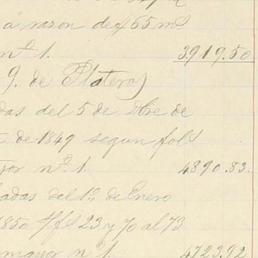 á razon de 465 ms
nº 1. 3919.50
9. de Platero)
das del 5 de Dbre de
de 1849 segun fols
yor nº 1. 4890.83.
ladas del 1º de Enero
1850 fs 23 y 70 al 73
mayor nº 1 4723.92